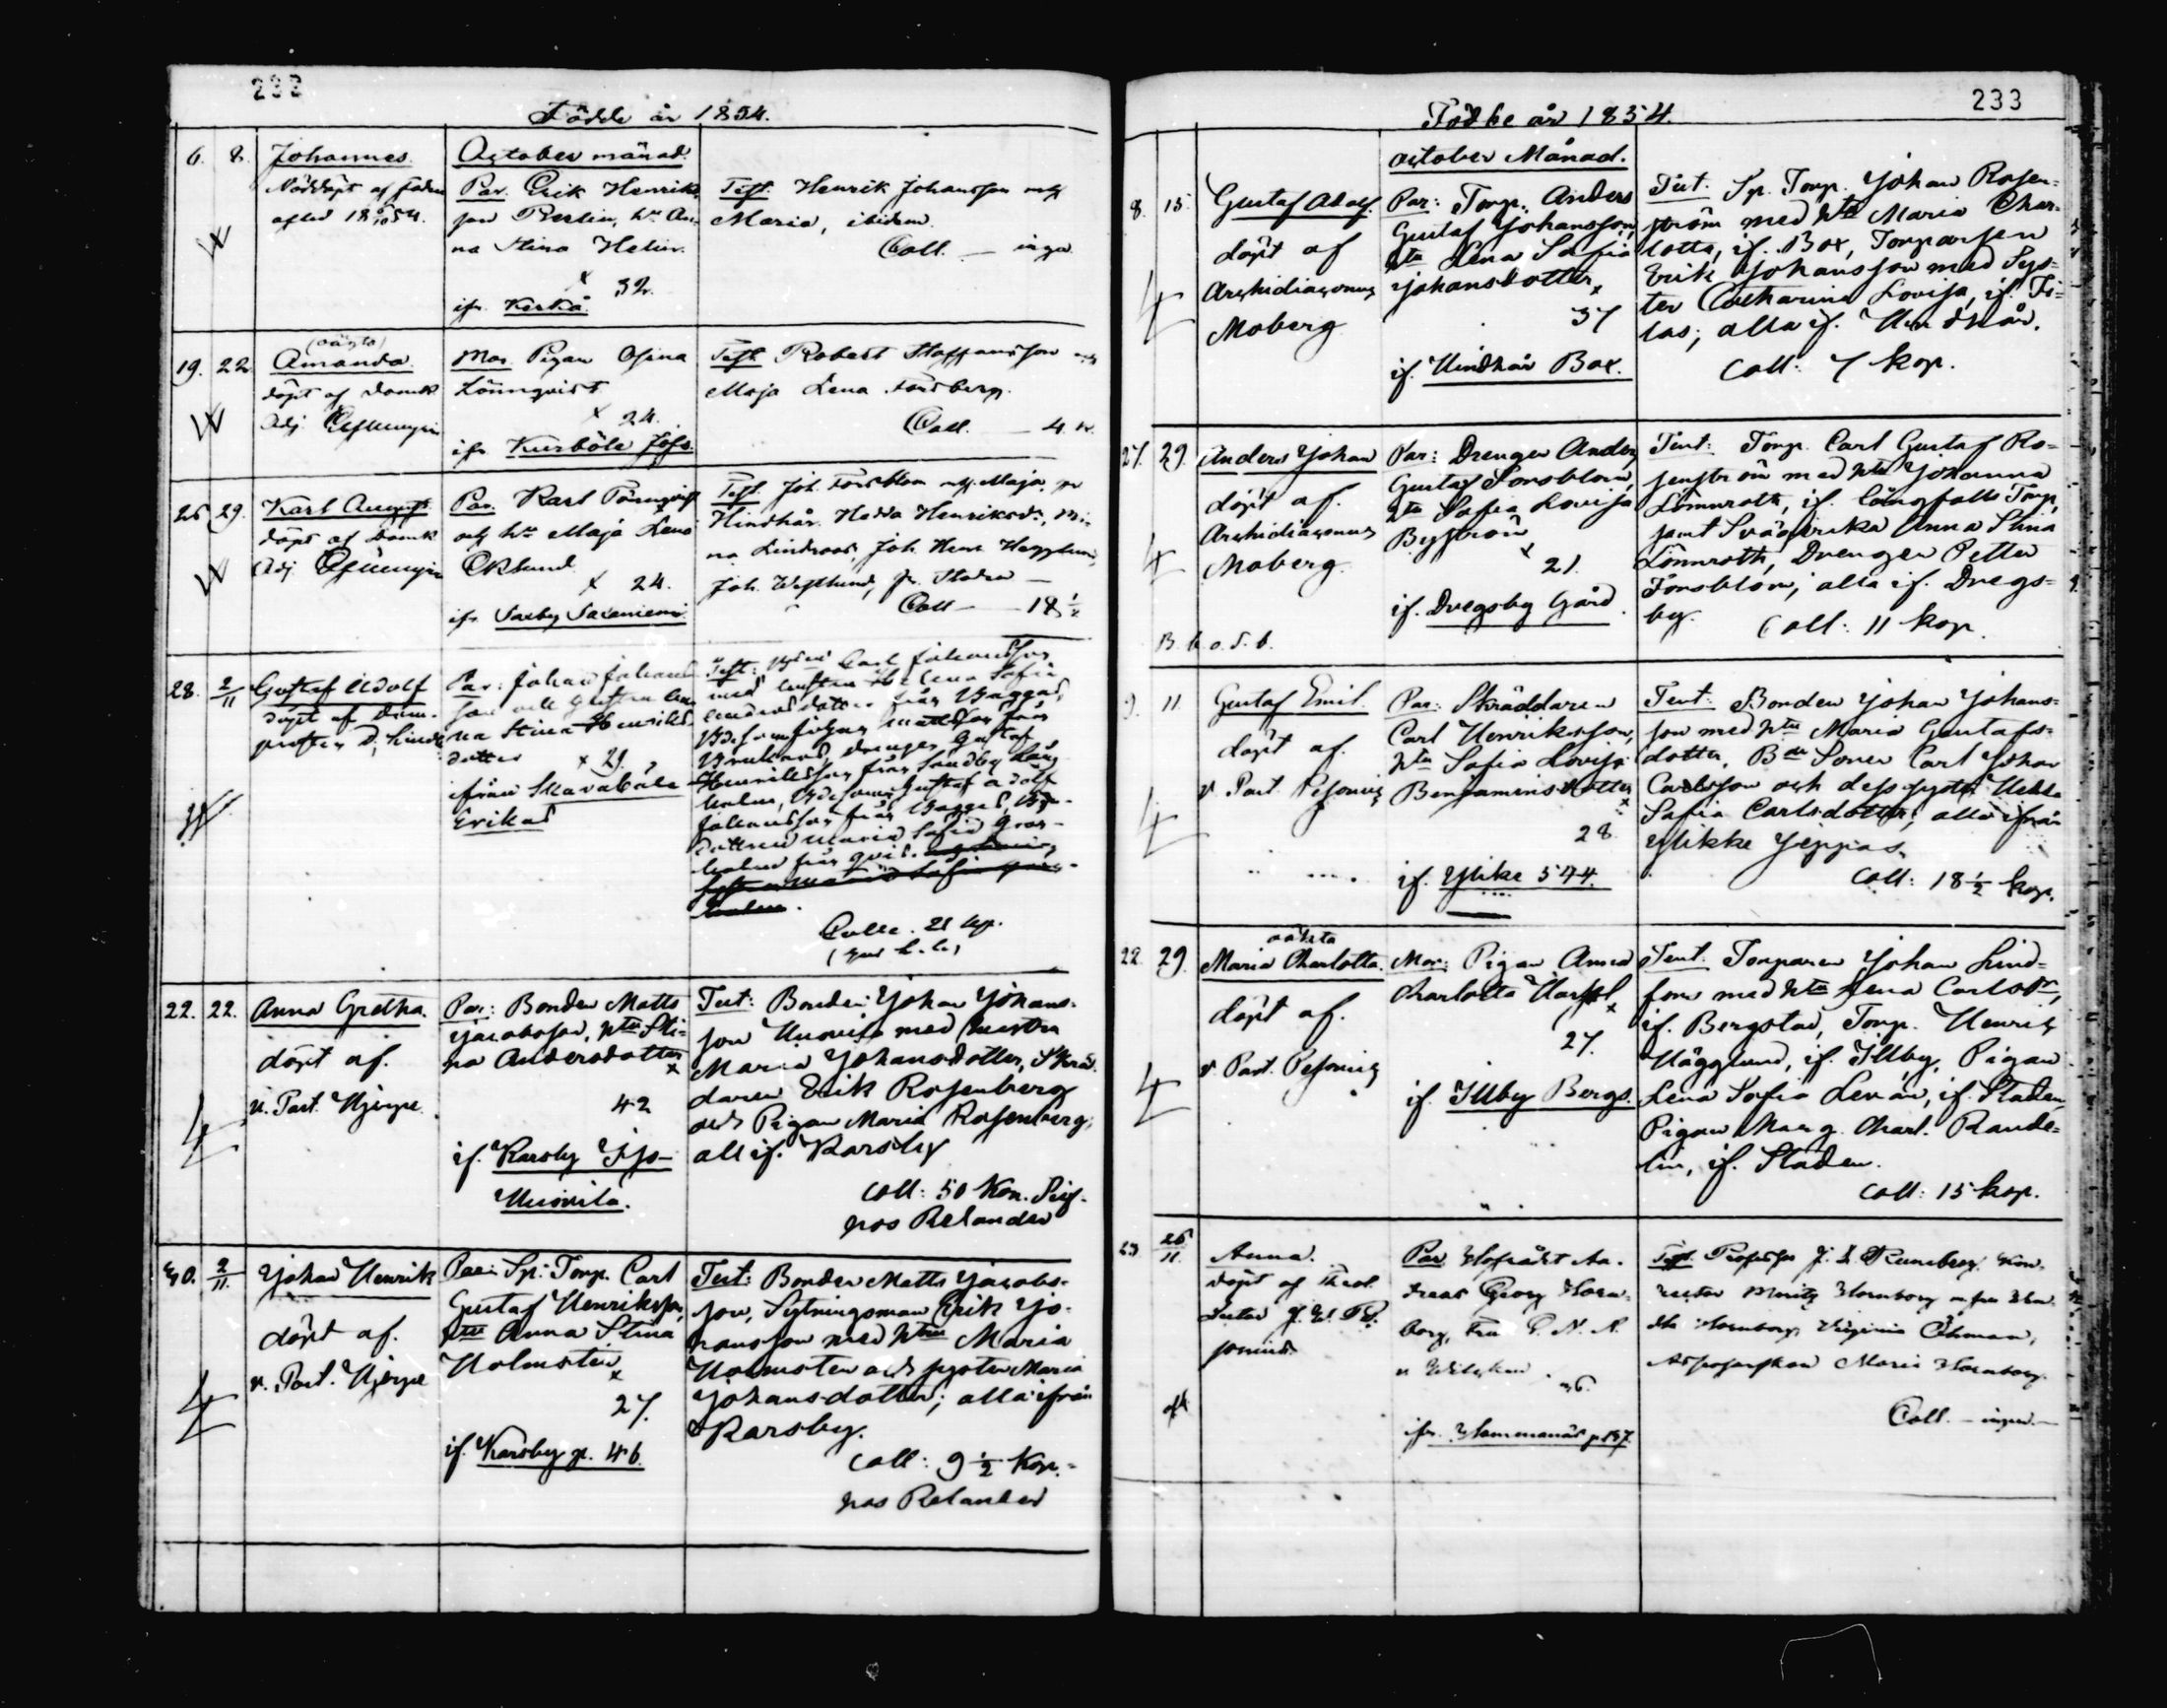 233
Födde år 1854.
6. 8. Johannes.
Nöddöpt af fadren
October månad.
Par. Erik Henriks
son Berlin, hu An-
na Stina Helin.
32.
ifr
Test. Henrik Johansson och
Maria, ibidem.
Coll. — inga
19. 22 (oäkta)
Amanda.
döpt af Domk
Adj
Mor Pigan
Lönnqvist
24.
ifr Kurböle
Test. Robert Staffansson
Maja Lena Forsberg.
Coll. — 4 k.
26 29. Karl August
döpt af Domk
Adj
Par. Karl Törnqvist
och hu Maja Lena
Eklund
24.
ifr Saxby Saxeniemi
Test. Joh. Forsblom och Maja, fr
Hindhår. Hedda Henriksdr, Mi-
na Lindroos, Joh. Henr. Hägglund,
Joh. Westlund, fr. Staden —
Coll — 18 ½
28. 2/11 Gustaf Adolf
döpt af Dom-
prosten
Par: Johan Johans
son och hustrun An
na Stina Henriks
dotter
29.
ifrån Skavaböle
Erikas
Test: Carl Johansson
med hustru Lena Sofia
Andersdotter från Baggas,
från
drengen Gustaf
Henriksson från Sandby Lång
Gustaf Adolf
Johansson från Baggas,
dottren Maria Sofia Gran-
holm från
Colle. 21 kp.
22. 22. Anna Gretha.
döpt af.
v. Past. Hjerpe.
Par: Bonden Matts
Jacobsson, hu Sti-
na Andersdotter
42
if. Karsby Yjo-
Test: Bonden Johan Johans-
son med hustru
Maria Johansdotter, Skräd-
daren Erik Rosenberg
och Pigan Maria Rosenberg,
all if. Karsby
Coll: 50 Kop. Sif.
hos Relander
30. 2/11. Johan Henrik
döpt af.
v. Past. Hjerpe
Par: Sp: Torp. Carl
Gustaf Henriksson,
hu Anna Stina
Holmsten
27.
if. Karsby p. 46.
Test: Bonden Matts Jacobs-
son, Sytningsman Erik Jo-
hansson med hu Maria
Holmsten och syster Maria
Johansdotter; alla ifrån
Karsby.
Coll: 9 ½ Kop.
hos Relander
233
Födde år 1854.
October Månad.
8. 15. Gustaf Adolf.
döpt af
Archidiaconus
Moberg
Par: Torp. Anders
Gustaf Johansson,
hu Lena Sofia
Johansdotter
37
if. Hindhår Box.
Test: Sp. Torp. Johan Rosen-
ström med hu Maria Char-
lotta, if. Box, Torparson
Erik Johansson med Sys-
ter Catharina Lovisa, if. Ti-
las, alla if. Hindhår.
Coll: 7 kop.
27. 29. Anders Johan
döpt af.
Archidiaconus
Moberg.
Par: Drengen Anders
Gustaf Forsblom,
hu Sofia Lovisa
Byström
21.
if. Drägsby Gård.
Test: Torp. Carl Gustaf Ro-
senström med hu Johanna
Lönnroth, if. Långfalls Torp,
samt Svägerska Anna Stina
Lönnroth, Drengen Petter
Forsblom, alla if. Dregs-
by.
Coll: 11 kop.
B. b. o. S. b.
9. 11. Gustaf Emil.
döpt af.
v Past Pesonius
Par: Skräddaren
Carl Henriksson,
hu Sofia Lovisa
Benjaminsdotter
28
if. Ylike 574.
Test: Bonden Johan Johans-
son med hu Maria Gustafs-
dotter, Bde Sonen Carl Johan
Carlsson och dess syster Hedda
Sofia Carlsdotter; alla ifrån
Ylikke Jeppas.
Coll: 18 ½ kop.
22. 29. oäkta
Maria Charlotta.
döpt af.
v. Past. Pesonius
Mor: Pigan Anna
Charlotta
27.
if. Illby Bergs.
Test. Torparen Johan Lind-
fors med hu Lena Carlsdr,
if. Bergstad, Torp. Henrik
Hägglund, if. Illby, Pigan
Lena Sofia Lenán, if. Staden,
Pigan Marg. Charl. Rande-
lin, if. Staden.
Coll: 15 kop.
29. 26/11. Anna.
döpt af Theol.
Par Hofrådt An-
dreas Georg Horn-
borg, Fru
ifr. Hammarås p 157.
Test. Professor J. L. Runeberg, Kon-
rector Moritz Hornborg
Hornborg, Virginia Öhman,
Maria Hornborg.
Coll. — ingen —